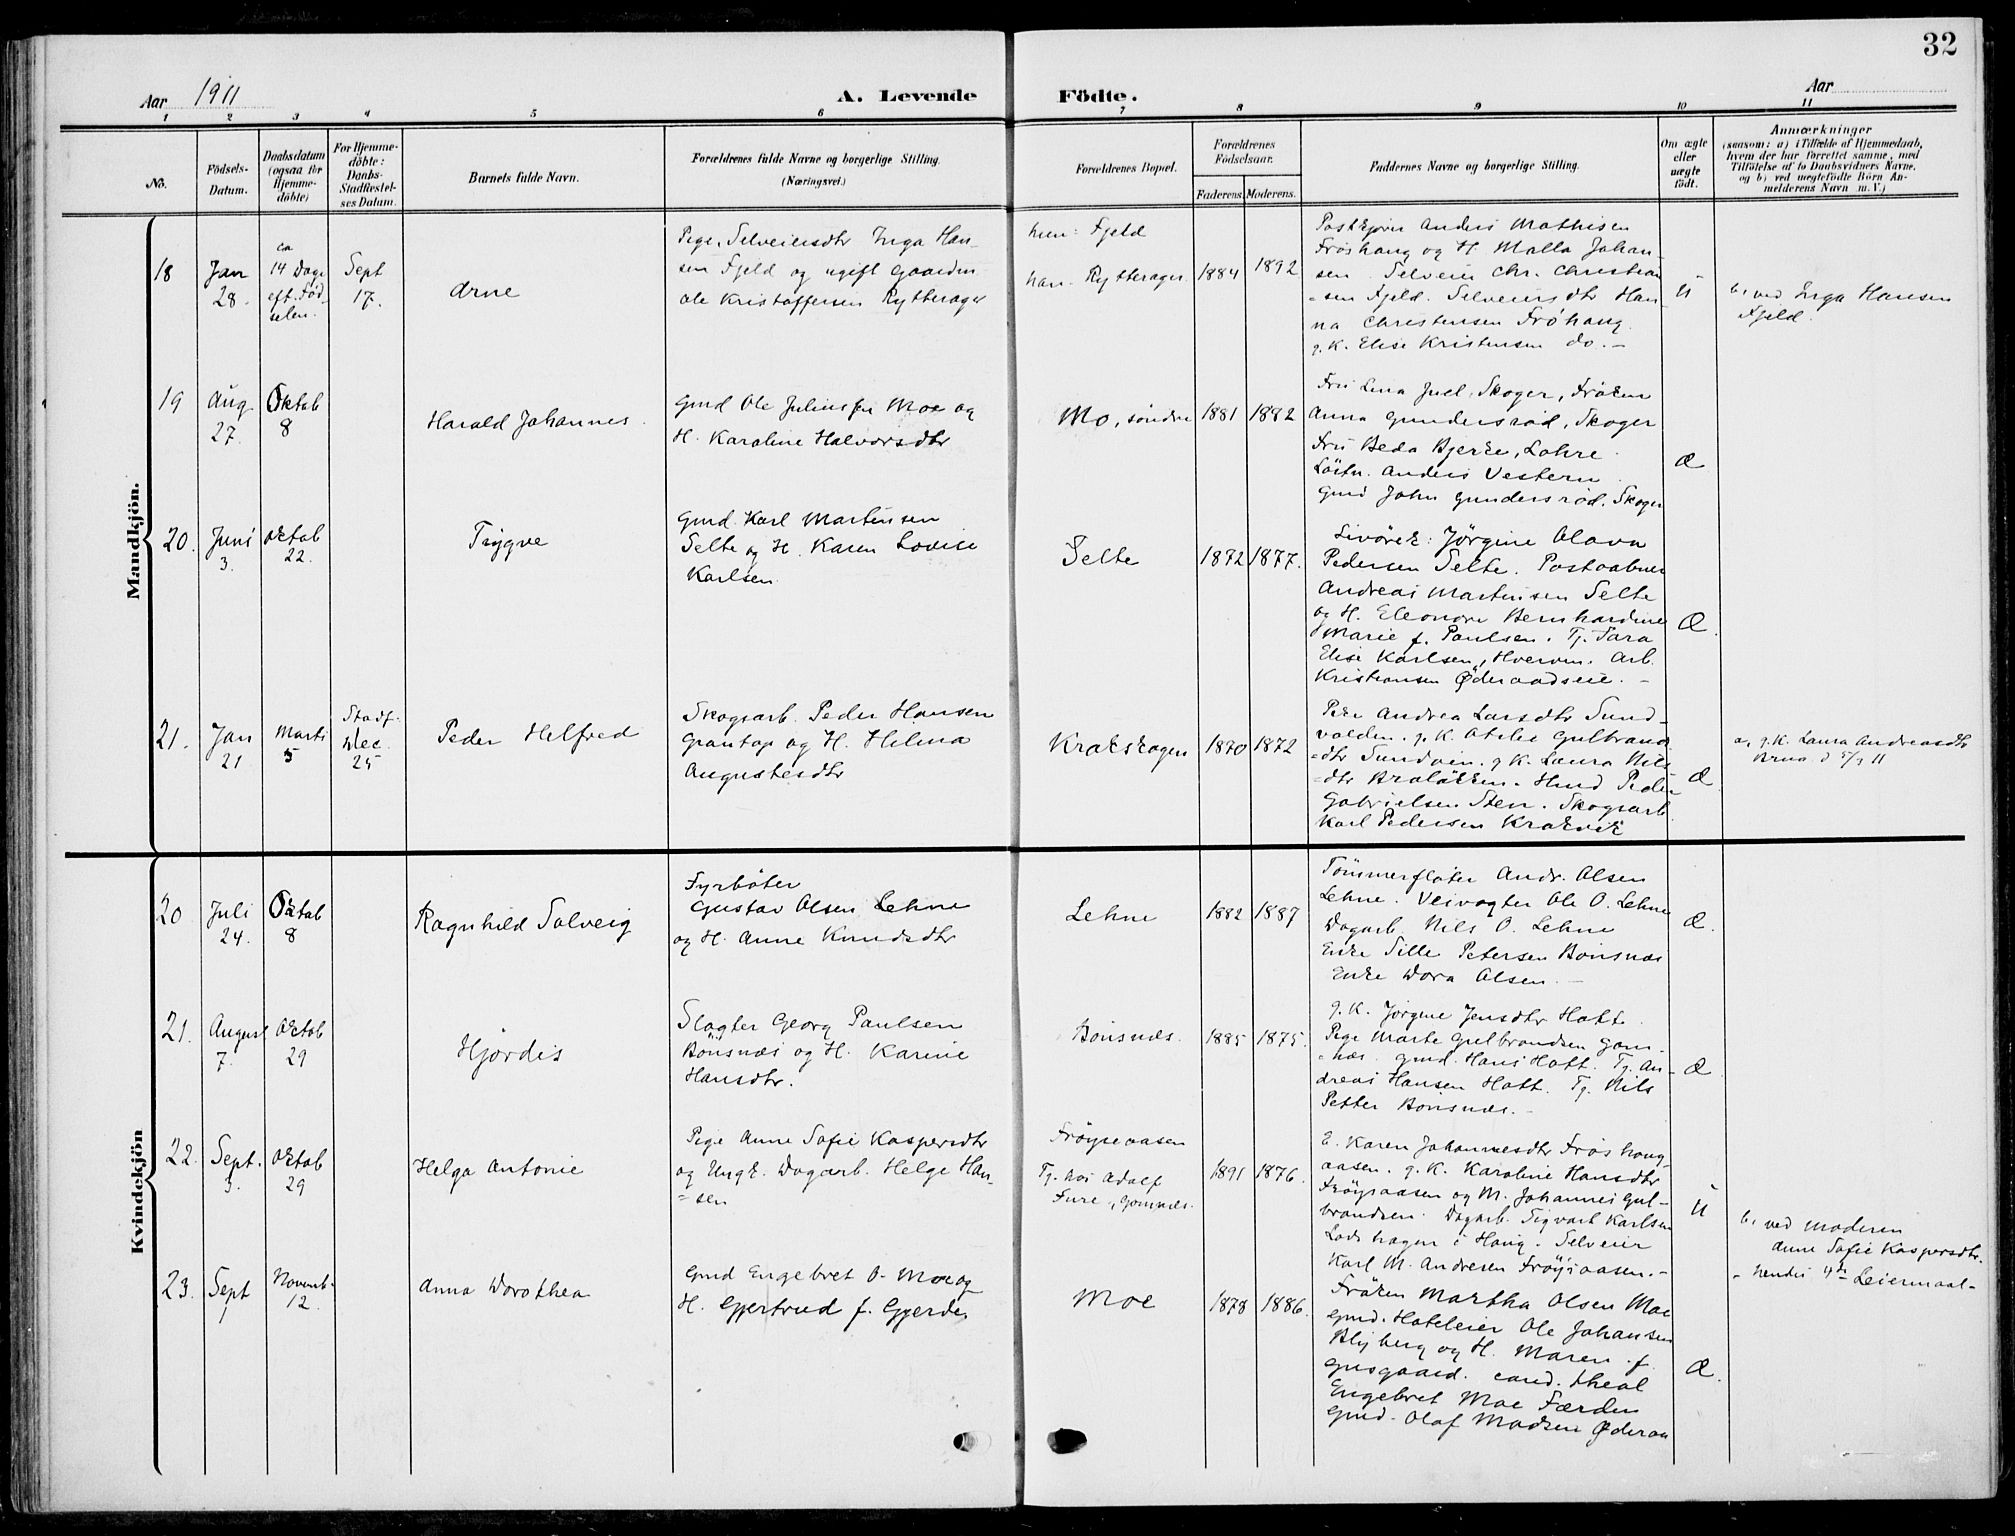 32
Aar 1911
A. Levende Födte.
Aar
1 2 3 4 5 6 7 8 9 10 11
No.
Födsels-
Datum.
Daabsdatum
(ogsaa for
Hjemme-
döbte)
For Hjemme-
döbte:
Daabs-
Stadfæstel-
ses Datum.
Barnets fulde Navn.
Forældrenes fulde Navne og borgerlige Stilling.
(Næringsvei.)
Forældrenes Bopæl.
Forældrenes
Födselsaar.
Faderens.
Moderens.
Faddernes Navne og borgerlige Stilling.
Om ægte
eller
uægte
födt.
Anmærkninger
(saasom: a) i Tilfælde af Hjemmedaab,
hvem der har forrettet samme, med
Tilföielse af to Daabsvidners Navne,
og b) ved uægtefödte Börn An-
melderens Navn m. V.)
Mandkjön.
18
Jan
28.
ca
14 Dage
eft. Föd-
selen.
Sept
17.
Arne
Pige, Selveiersdtr Inga Han-
sen Fjeld og ugift Gaardm.
Ole Kristoffersen Rytterager
hun: Fjeld
han. Rytterager
1884
1892
Anders Mathisen
Fröshaug og H. Malla Johan-
sen. Selveier Chr. Christian
-sen Fjeld. Selveiersdtr Han-
na Christensen Fröhaug.
g. K. Elise Kristensen do. -
U
b, ved Inga Hansen
Fjeld.
19
Aug
27.
Oktob
8
Harald Johannes.
Gmd Ole Juliussen Moe og
H. Karoline Halvorsdtr
Mo, söndre
1881
1882
Fru Lina Juel, Skoger, Fröken
Anna Gundersröd, Skoger
Fru Beda Bjerke, Lohre.
Löitn. Anders Vestern.
Gmd John Gundersröd. Skoger
Æ
20.
Juni
3.
Oktob
22.
Trygve
Gmd. Karl Martinsen
Selte og H. Karen Lovise
Karlsen.
Selte
1872
1877.
Livörk: Jørgine Olava
Pedersen Selte. Postaabner
Andreas Martinsen Selte
og H. Eleonore Bernhardine
Marie f. Paulsen. Tj. Sara
Elise Karlsen, Hverven. Arb.
Kristiansen Øderaadseie. -
Æ.
21.
Jan
21
Marts
5
Stadf.
Dec.
25
Peder Helfred
Skogsarb. Peder Hansen
Grantop og H. Helma
Augustesdtr
Krokskogen
1870
1872
Pike Andrea Larsdtr Sund-
volden. g. K. Otelie Gulbrands
=dtr Sundøen. g K. Laura Nils
=dtr Braløkken. Hmd Peder
Gabrielsen Sten. Skogsarb.
Karl Pedersen Krokvik
Æ.
a, g. K. Laura Andreasdtr
Brua. d 5/3 11
Kvindekjön
20
Juli
24.
Oktob
8
Ragnhild Solveig
Fyrböter
Gustav Olsen Lehne
og H. Anne Knudsdtr
Lehne
1882
1887
Tömmerfløter Andr. Olsen
Lehne. Veivogter Ole O. Lehne
Dagarb. Nils O. Lehne
Enke Sille Petersen Bønsnæs
Enke Dora Olsen. -
Æ.
21.
August
7.
Oktob
29
Hjördis
Slagter Georg Paulsen
Bönsnæs og H. Karine
Hansdtr.
Bönsnæs.
1885
1875.
g. K. Jørgine Jensdtr Hatt.
Pige Marte Gulbrandsen Gom-
=næs. Gmd. Hans Hatt. Tj. An-
dreas Hansen Hatt. Tj. Nils
Petter Bönsnæs. -
Æ
22.
Sept.
3.
Oktob
29
Helga Antonie
Pige Anne Sofie Kaspersdtr
og Ungk. Dagarb. Helge Han-
=sen
Fröyseaasen
Tj. hos Adolf
Fure, Gomnæs.
1891
1876.
E. Karen Johannesdtr Fröshaug-
aasen. g. K. Karoline Hansdtr
Fröysaasen og M. Johannes Gul-
brandsen. Dagarb. Sigvart Karlsen
Lodshagen i Haug. Selveier
Karl M. Andresen Fröysaasen. -
U
b, ved Moderen
Anne Sofie Kaspersdtr.
- hendes 4de Leiermaal-
23.
Sept
1
Novemb.
12.
Anna Dorothea
Gmd Engebret O. Moe og
H. Gjertrud f. Gjerde.
Moe
1878
1886.
Fröken Martha Olsen Moe
Gmd. Hoteleier Ole Johansen
Blyberg og H. Maren f.
Gusgaard. Cand. theol
Engebret Moe Færden
Gmd. Olaf Madsen Øderaa
Æ.